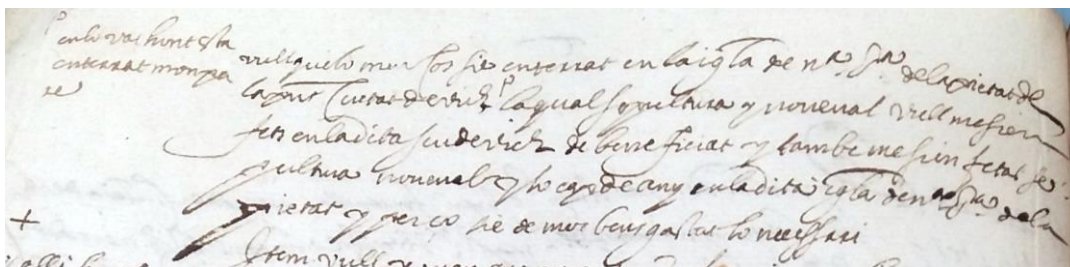 en lo vas hont esta
enterrat mon pa
re
vull que lo meu cos sie enterrat en la igla de nª Sª de la pietat de
la pnt Ciutat de vich la qual sepultura y novenal vull me sien
fets en la dita seu de vich de beneficiat y tambe me sien fetas se
pultura novenal y lo cap de any en la dita igla de nª Sª de la
pietat y per ço sie de mos bens gastat lo necessari
+
Item vull y